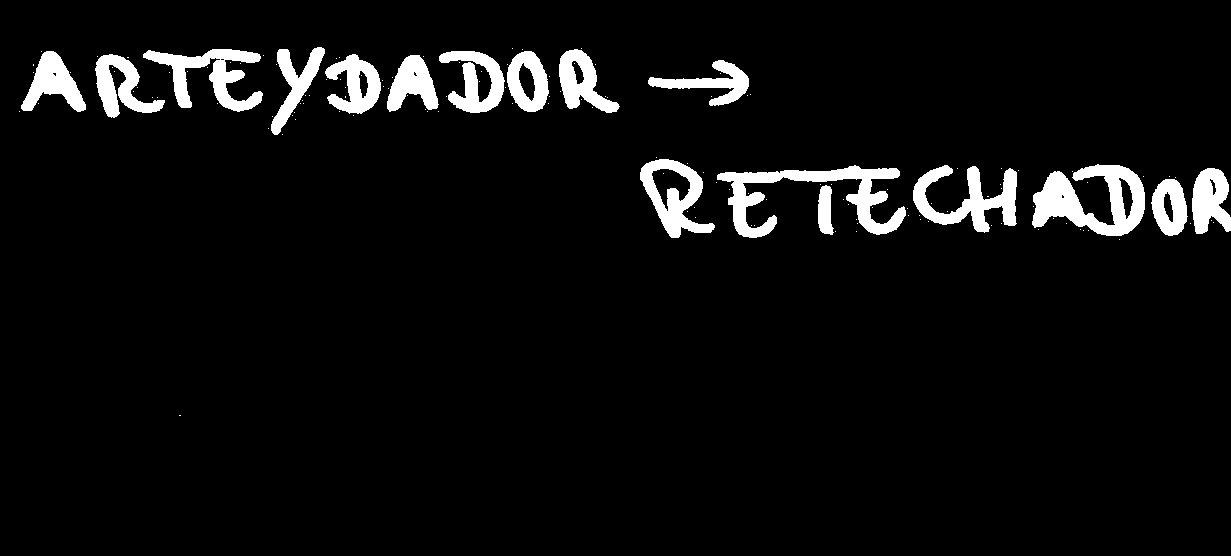 ARTEYDADOR →
RETECHADOR